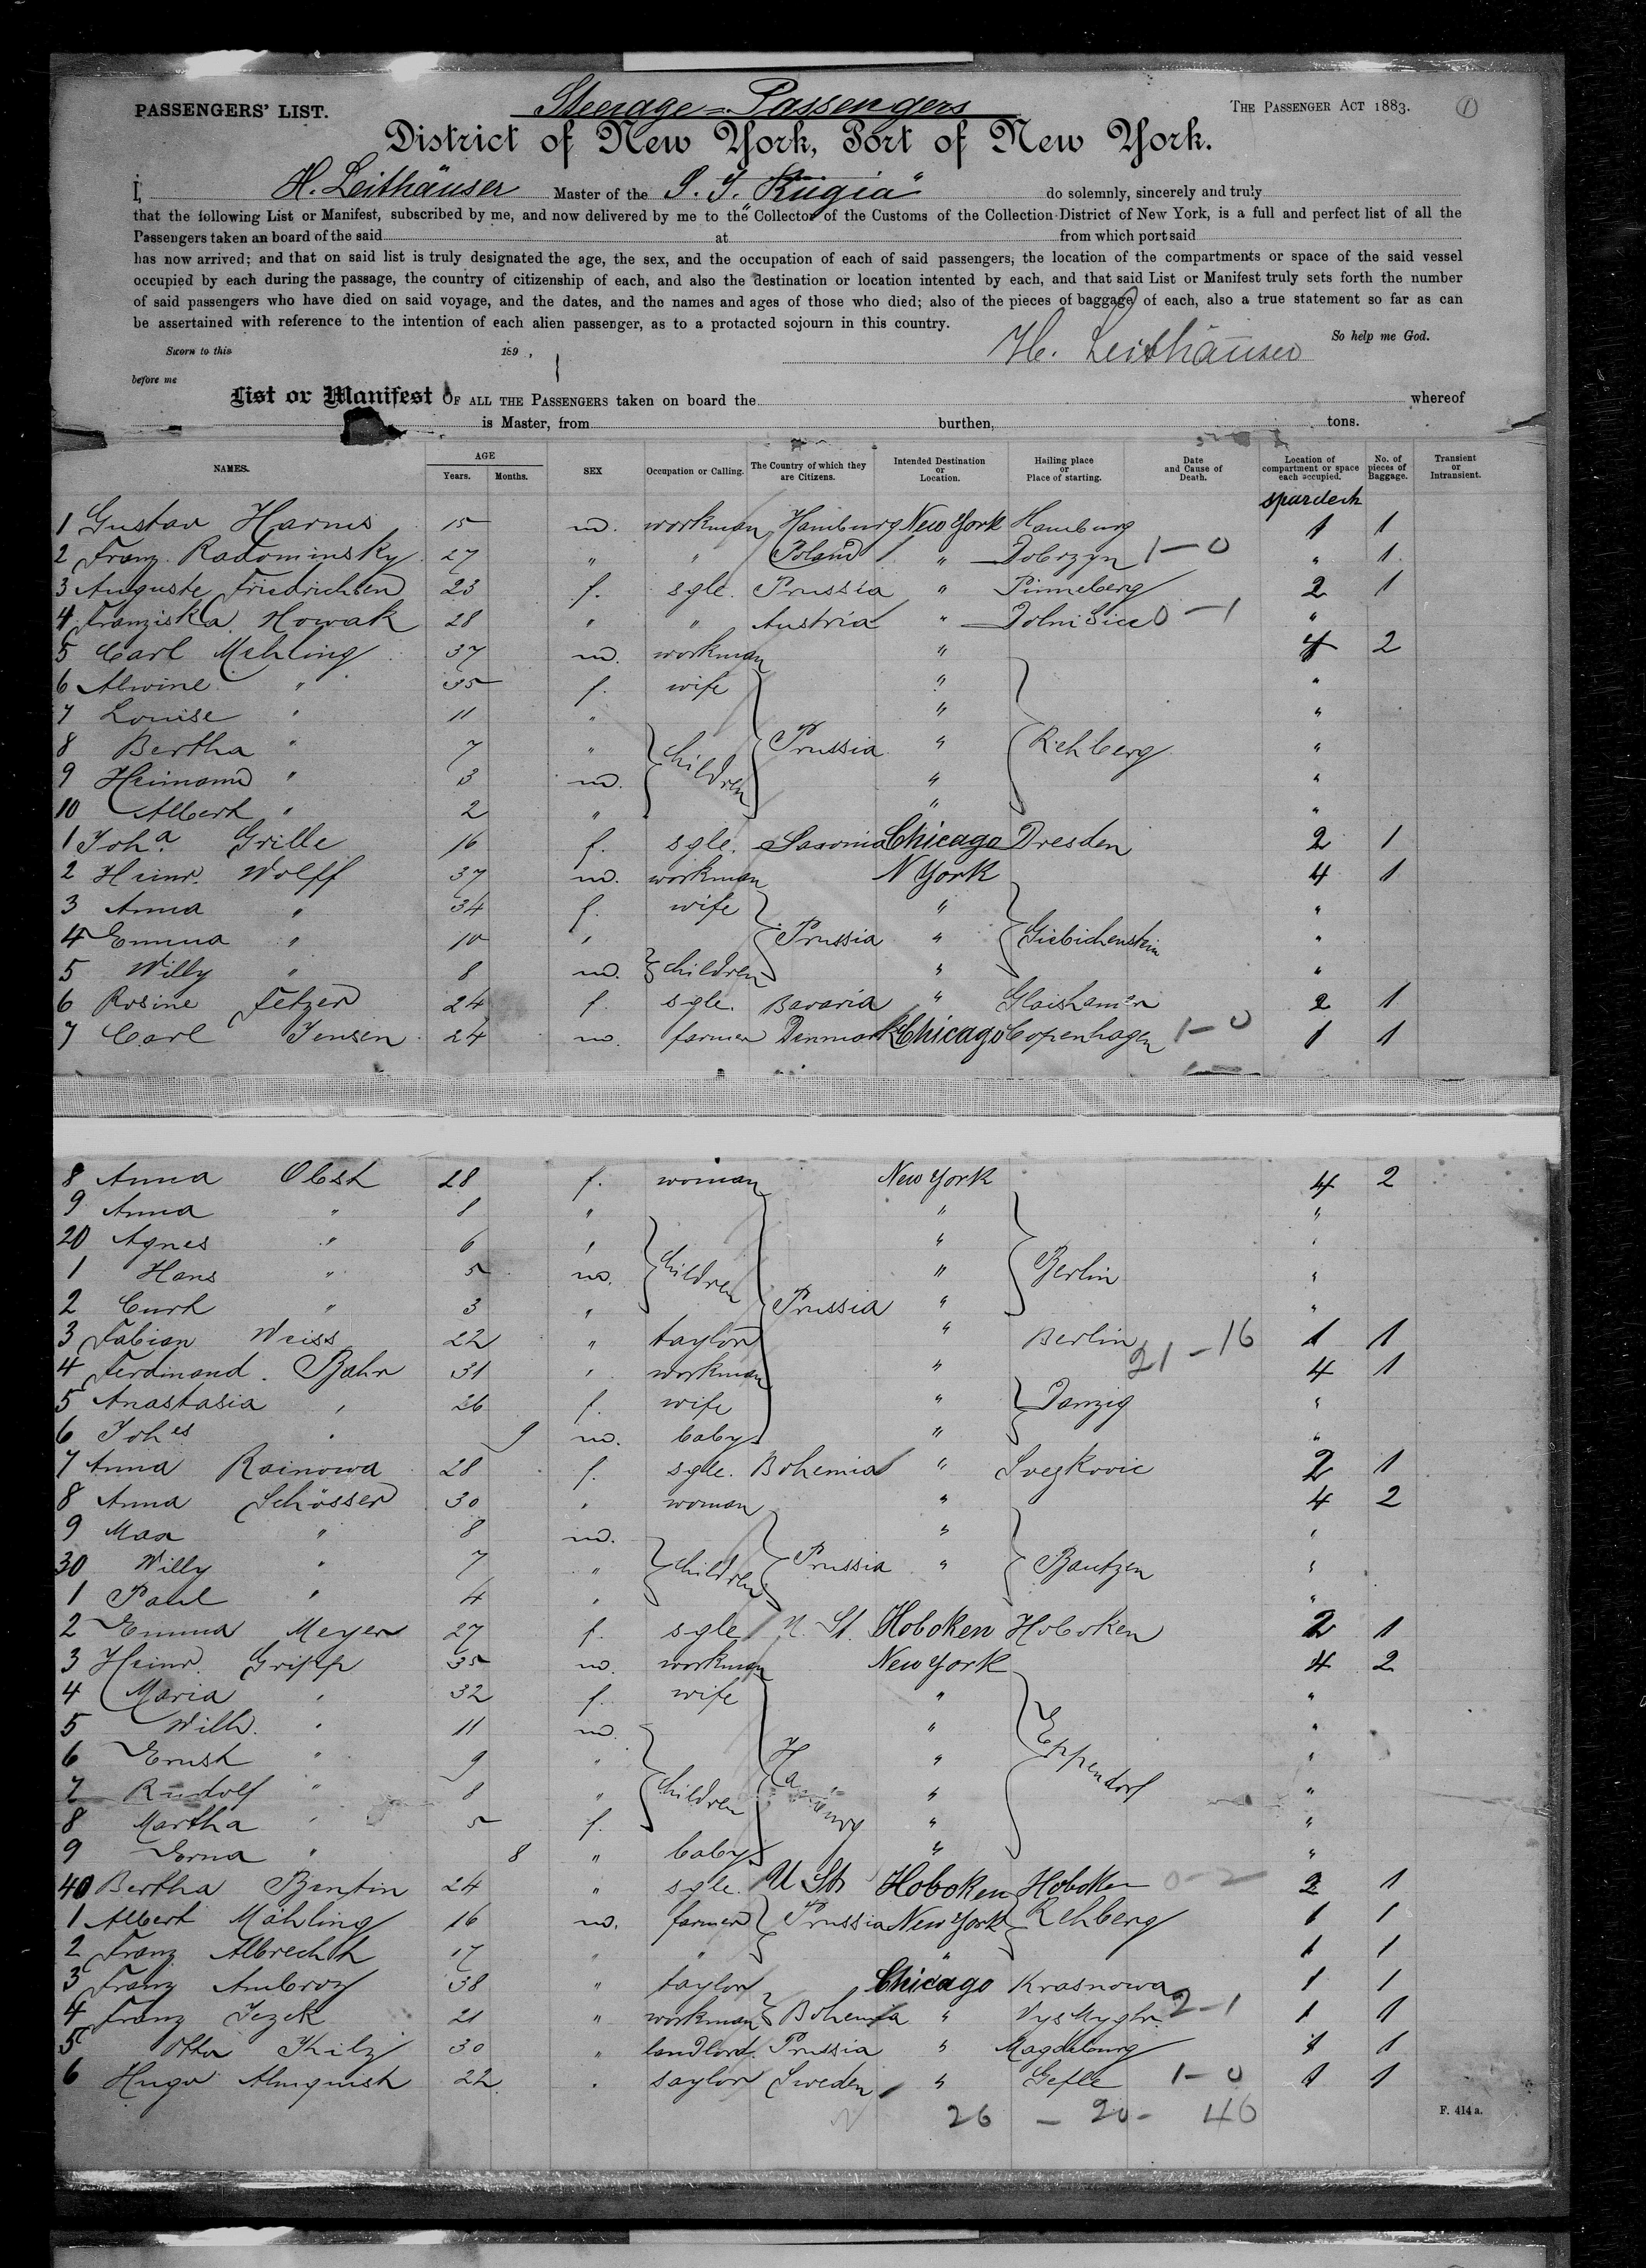 PASSENGERS' LIST. Steerage-Passengers THE PASSENGER ACT 1883. 1
District of New York, Port of New York.
I, H. Leithäuser Master of the S. S. "Rugia" do solemnly, sincerely and truly
that the following List or Manifest, subscribed by me, and now delivered by me to the Collector of the Customs of the Collection District of New York, is a full and perfect list of all the
Passengers taken an board of the said at from which port said
has now arrived; and that on said list is truly designated the age, the sex, and the occupation of each of said passengers, the location of the compartments or space of the said vessel
occupied by each during the passage, the country of citizenship of each, and also the destination or location intented by each, and that said List or Manifest truly sets forth the number
of said passengers who have died on said voyage, and the dates, and the names and ages of those who died; also of the pieces of baggage of each, also a true statement so far as can
be assertained with reference to the intention of each alien passenger, as to a protacted sojourn in this country.
Sworn to this 189 , H. Leithäuser So help me God.
before me
List or Manifest OF ALL THE PASSENGERS taken on board the whereof
is Master, from burthen, tons.
NAMES. AGE Years. Months. SEX Occupation or Calling. The Country of which they are Citizens. Intended Destination or Location. Hailing place or Place of starting. Date and Cause of Death. Location of compartment or space each occupied. No. of pieces of Baggage. Transient or Intransient.
spardeck
1 Gustav Harms 15 m. workman Hamburg New York Hamburg 1 1
2 Franz Radominsky 27 " " Poland " Dobrzyn 1-0 " 1
3 Auguste Friedrichsen 23 f. sgle. Prussia " Pinneberg 2 1
4 Franziska Nowak 28 " " Austria " 0-1 "
5 Carl Mehling 37 m. workman " 4 2
6 Alwine " 35 f. wife " "
7 Louise " 11 " " "
8 Bertha " 7 " children Prussia " Rehberg "
9 " 3 m. " "
10 Albert " 2 " " "
1 Joha. Grille 16 f. sgle. Saxonia Chicago Dresden 2 1
2 Heinr. Wolff 37 m. workman N York 4 1
3 Anna " 34 f. wife " "
4 Emma " 10 " Prussia " Giebichenstein "
5 Willy " 8 m. children " "
6 Rosine Fetzer 24 f. sgle. Bavaria " 2 1
7 Carl Jensen 24 m. farmer Denmark Chicago Copenhagen 1-0 1 1
8 Anna Obst 28 f. woman New York 4 2
9 Anna " 8 " " "
20 Agnes " 6 " " "
1 Hans " 5 m. children " Berlin "
2 Curt " 3 " Prussia " "
3 Fabian Weiss 22 " taylor " Berlin 21-16 1 1
4 Ferdinand Bahr 31 " workman " 4 1
5 Anastasia " 26 f. wife " Danzig "
6 Johes " 9 m. baby " "
7 Anna Rainowa 28 f. sgle. Bohemia " 2 1
8 Anna Schösser 30 " woman " 4 2
9 Max " 8 m. " "
30 Willy " 7 " children Prussia " Bautzen "
1 Paul " 4 " "
2 Emma Meyer 27 f. sgle U. St. Hoboken Hoboken 2 1
3 Heinr. Gripp 35 m. workman New York 4 2
4 Maria " 32 f. wife " "
5 Wilh. " 11 m. " "
6 Ernst " 9 " Hamburg " Eppendorf "
7 Rudolf " 8 " children " "
8 Martha " 5 f. " "
9 Erna " 8 " baby " "
40 Bertha Bentin 24 " sgle. U St. Hoboken Hoboken 0-2 2 1
1 Albert Mähling 16 m. farmer Prussia New York Rehberg 1 1
2 Franz Albrecht 17 " " " 1 1
3 Franz Ambroz 38 " taylor Chicago Krasnowa 1 1
4 Franz Jezek 21 " workman Bohemia " 2-1 1 1
5 Otto 30 " landlord. Prussia " Magdeburg 1 1
6 Hugo Almquist 22 " saylor Sweden " Gefle 1-0 1 1
26 - 20 - 46
F. 414 a.